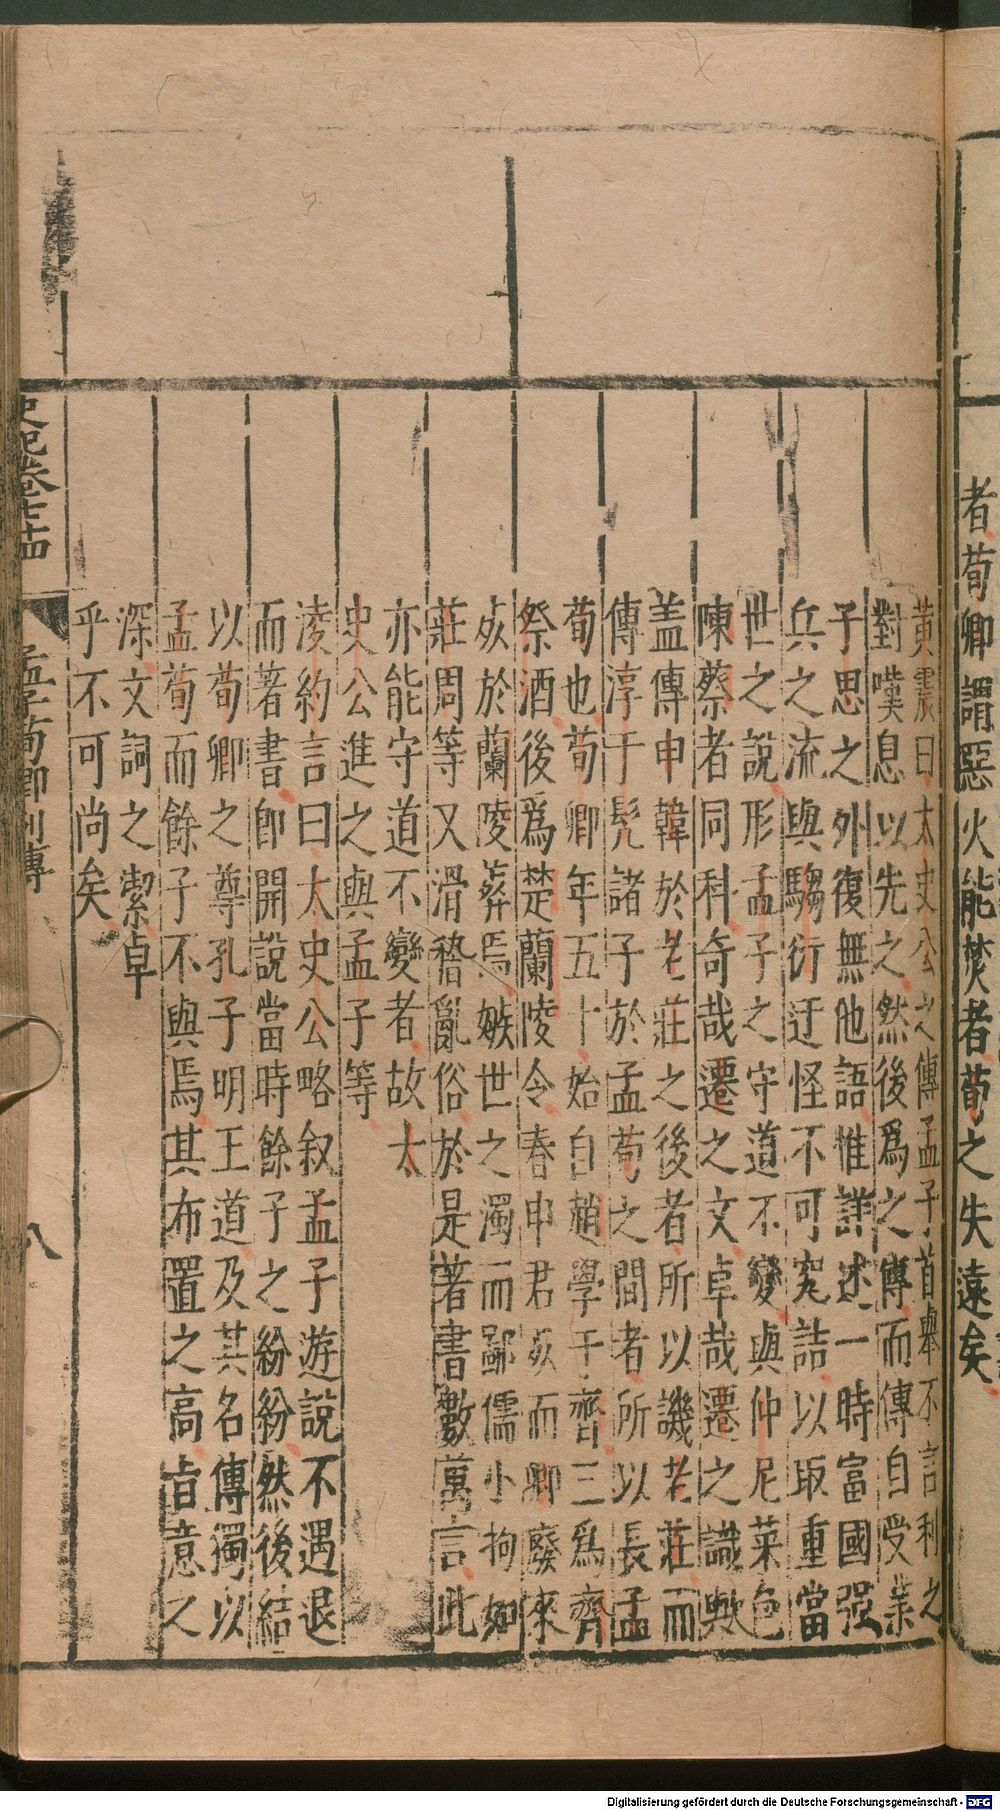 者荀卿謂惡火能焚者荀之失遠矣
黃震曰太史公之傳孟子首舉不言利之
對嘆息以先之然後爲之傳而傳自受業
子思之外復無他語惟詳述一時富國强
兵之流與騶衍迂怪不可究詰以取重當
世之說形孟子之守道不變與仲尼菜色
陳蔡者同科奇哉遷之文卓哉遷之識歟
盖傳申韓於老莊之後者所以譏老莊而
傳淳于髡諸子於孟荀之間者所以長孟
荀也荀卿年五十始自趙學于齊三爲齊
祭酒後爲楚蘭陵令春申君死而卿廢來
死於蘭陵葬焉嫉世之濁而鄙儒小拘如
莊周等又滑稽亂俗於是著書數萬言此
亦能守道不變者故太
史公進之與孟子等
淩約言曰太史公略叙孟子遊說不遇退
而著書即開說當時餘子之紛紛然後結
以荀卿之尊孔子明王道及其名傳獨以
孟荀而餘子不與焉其布置之高旨意之
深文詞之潔卓
乎不可尚矣
史記卷七十四
孟子荀卿列傳
八
Digitalisierung gefördert durch die Deutsche Forschungsgemeinschaft - DFG